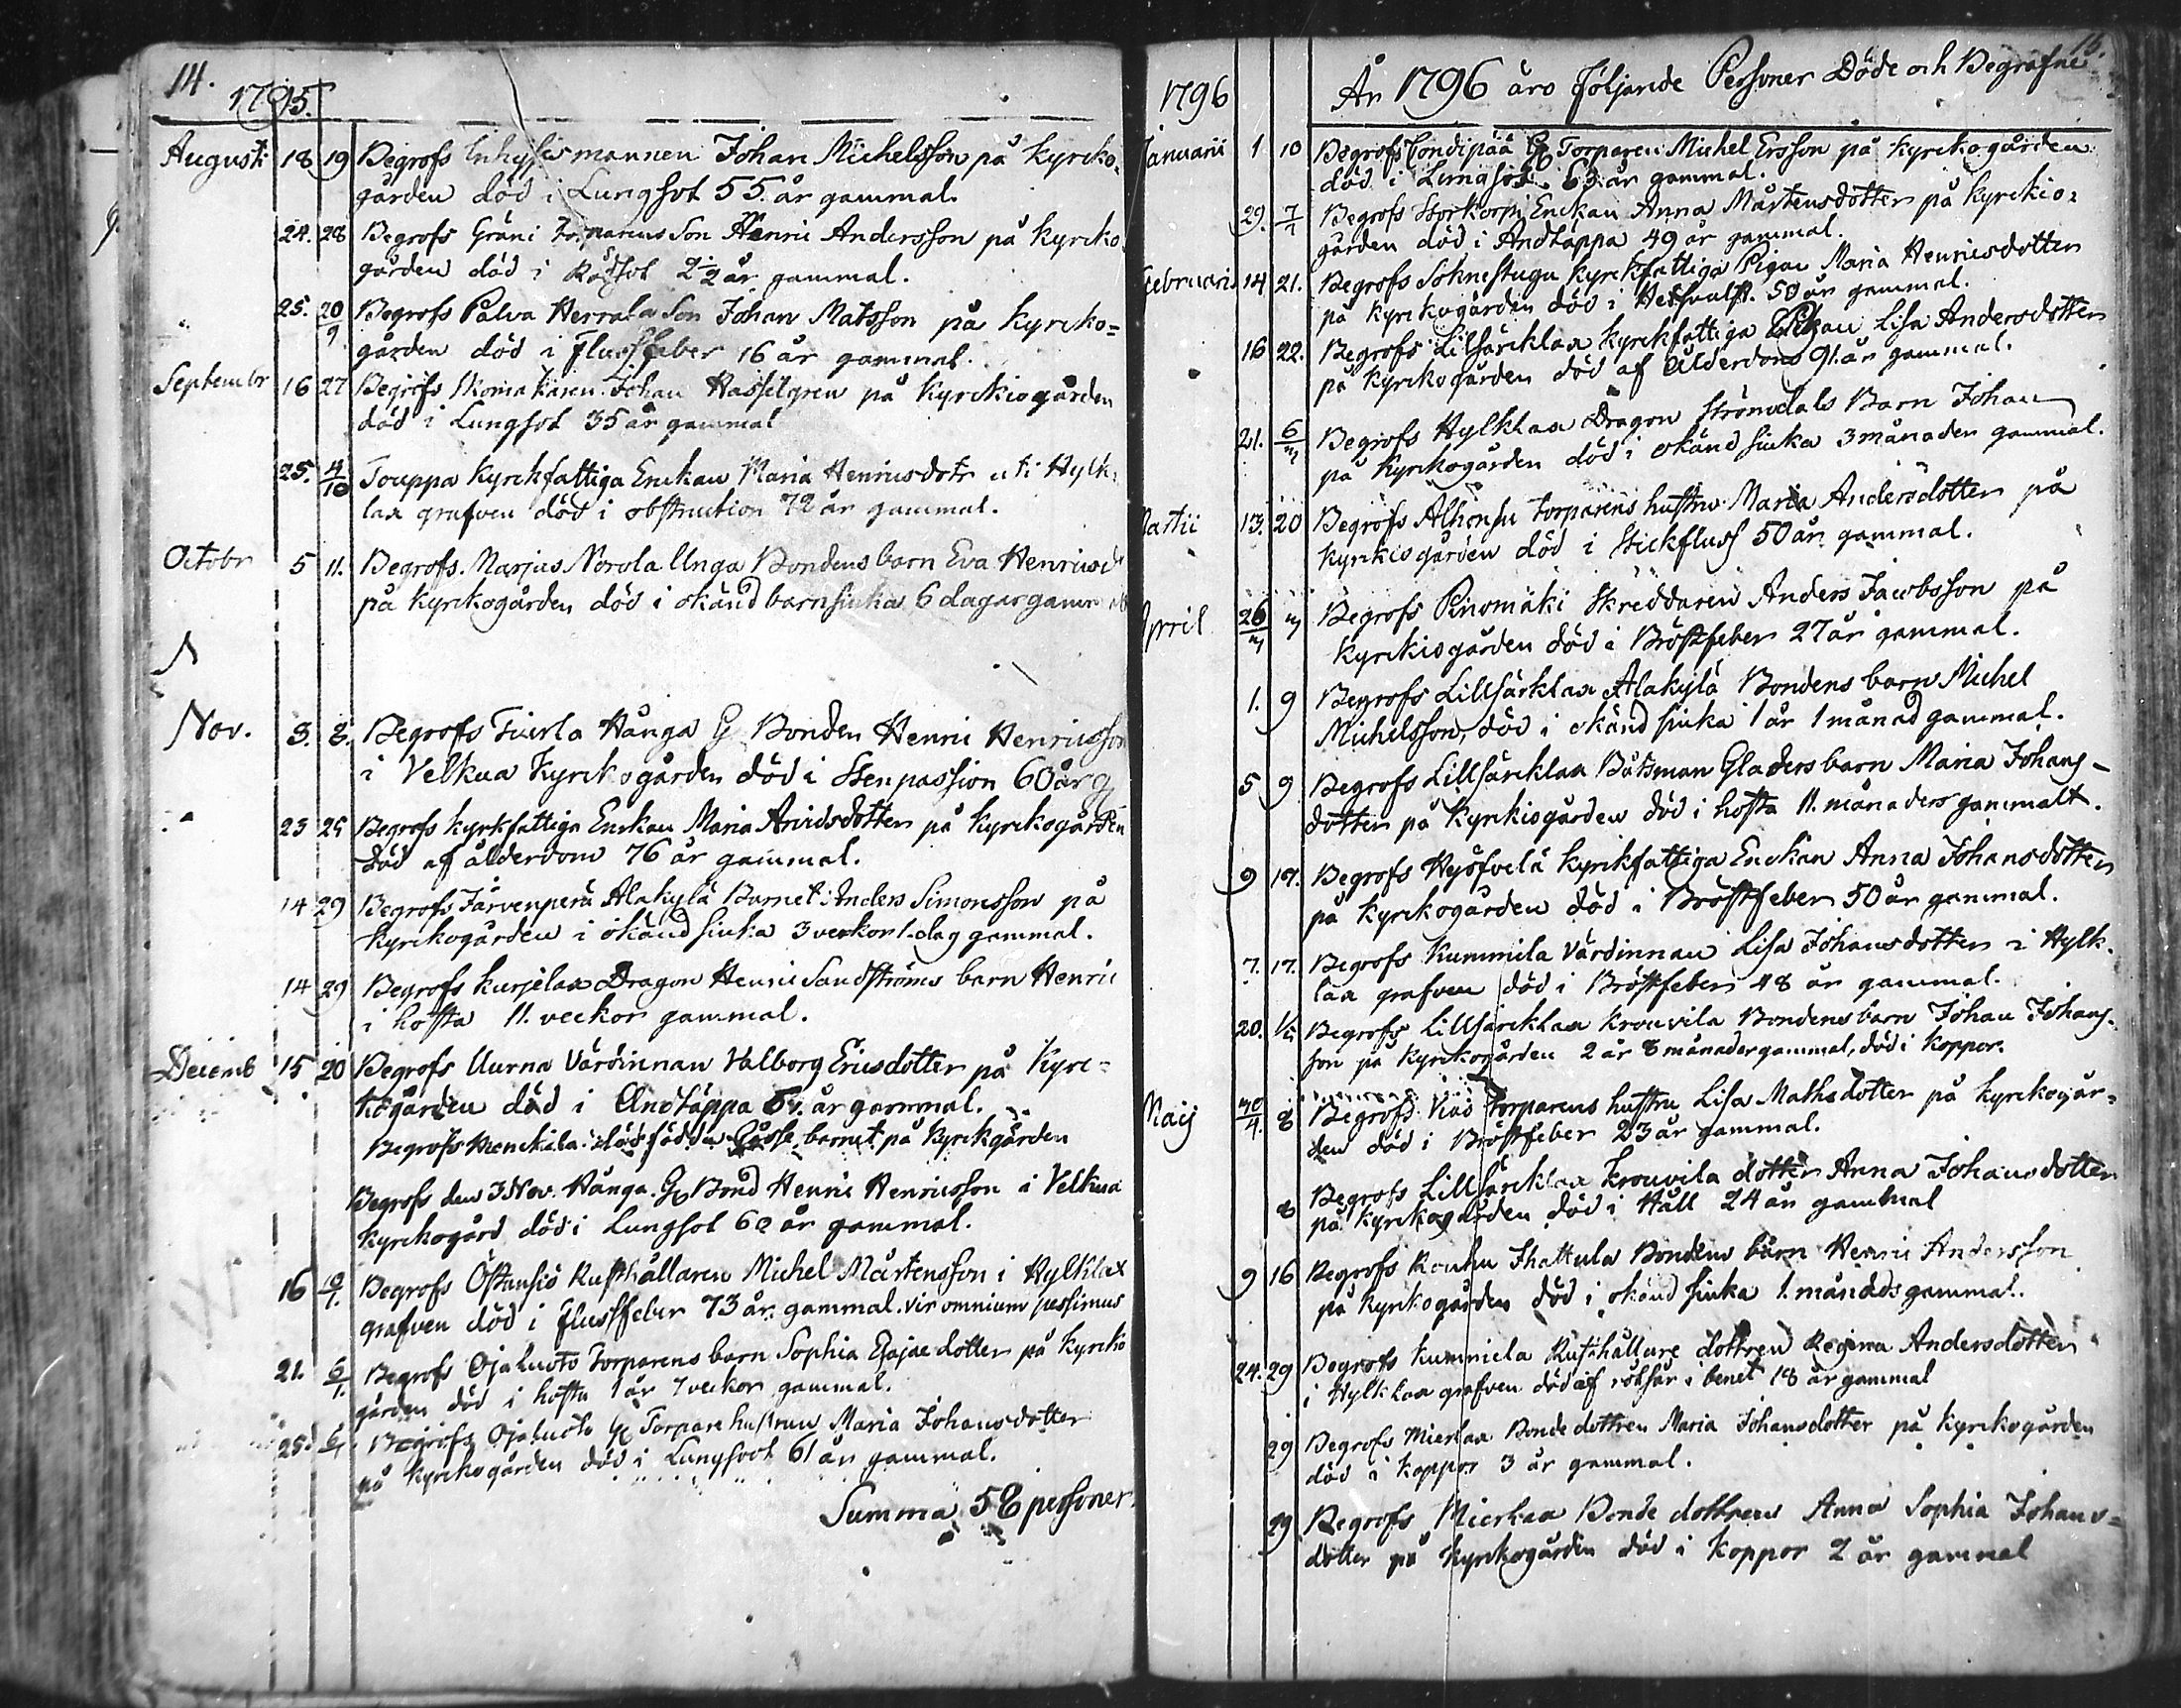 14.
1795.
Augusti 18 19 Begrofs Inhyses mannen Johan Michelsson på kyrcko-
gården död i Lungsot 55. år gammal.
24. 28 Begrofs Gräni Torparens Son Henric Andersson på kyrcko
gården död i Rödsot 2 1/2 år gammal.
25. 20/9 Begrofs Palva Herrala Son Johan Matsson på kyrcko=
gården död i flussfeber 16 år gammal.
Septembr 16 27 Begrofs Skomakaren Johan Hasselgren på kyrckiogården
död i Lungsot 35 år gammal
25. 4/10 Touppa kyrckfattiga Enckan Maria Henricsdotr uti Hylk-
lax grafven död i obstruction 72 år gammal.
Octobr 5 11. Begrofs Marjus Norola Unga Bondens barn Eva Henricsd
på kyrckogården död i okänd barnsiuka 6 dagar gammal
N
Nov. 3. 8. Begrofs Tuerla Hånga G Bonden Henric Henricsson
i Velkua Kyrckogården död i Stenpassion 60 år g
23 25 Begrofs kyrkfattiga Enckan Maria Arvidsdotter på kyrckogården
död af ålderdom 76 år gammal.
14 29 Begrofs Järvenperä Alakylä Barnet Anders Simonsson på
kyrckogården i okänd siuka 3 veckor 1. dag gammal.
14 29 Begrofs kurjelax Dragon Henric Sandströms barn Henric
i hosta 11. veckor gammal.
Decemb 15 20 Begrofs Uurna Värdinnan Valborg Ericsdotter på Kyrc=
kogården död i Andtäppa år gammal.
Begrofs Menckila dödfödda Gosse barnet på Kyrckgården
Begrofs den 3 Nov. Hånga Gl Bond Henric Henricsson i Velkua
kyrckogård död i Lungsot 60 år gammal.
16 10/1. Begrofs Östensiö Rusthållaren Michel Mårtensson i Hylklax
grafven död i flussfeber 73 år gammal. vir omnium pessimus
21. 6/1. Begrofs Ojaluoto Torparens barn Sophia Esajae dotter på kyrcko
gården död i hosta 1 år 7 veckor gammal.
25. 6/1 Begrofs Ojaluoto Gl Torpare hustrun Maria Johansdotter
på kyrckogården död i Lungsoot 61 år gammal.
Summa 58 personer
15.
1796 År 1796 äro följande Personer Döde och Begrafne
Januarii 1 10 Begrofs Condipää Gl Torparen Michel Ersson på kyrckogården
död i Lungsot 63 år gammal.
29. 7/1 Begrofs Storkorpi Enckan Anna Mårtensdotter på kyrckio=
gården död i Andtäppa 49 år gammal.
Februarii 14 21. Begrofs Sohnestugu kyrckfattiga Pigan Maria Henricsdotter
på kyrckogården död i 50 år gammal.
16 22. Begrofs Lillsärcklax kyrckfattiga Lisa Andersdotter
på kyrckogården död af ålderdom 91. år gammal.
21. 6/m Begrofs Hylklax Dragon Strömdals Barn Johan
på kyrckogården död i okänd siuka 3 månader gammal.
Martii 13. 20 Begrofs Alhonsu torparens hustru Maria Andersdotter på
kyrckiogården död i Stickfluss 50 år gammal.
April 26/m m Begrofs Pinomäki Skreddaren Anders Jacobsson på
kyrckiogården död i Bröstfeber 27 år gammal.
1. 9 Begrofs Lillsärklax Alakylä Bondens barn Michel
Michelsson, död i okänd siuka 1 år 1 månad gammal.
5 9 Begrofs Lillsärcklax Båtsman Gladers barn Maria Johans-
dotter på kyrckiogården död i hosta 11. månaders gammalt.
9 17. Begrofs Hyöfvelä kyrckfattiga Enckan Anna Johansdotter
på kyrckogården död i Bröstfeber 50 år gammal.
7. 17. Begrofs Kummila Värdinnan Lisa Johansdotter i Hylk-
lax grafven död i Bröstfeber 48 år gammal.
20. Begrofs Lillsärcklax krouvila Bondens barn Johan Johans-
son på kyrckogården 2 år 8 månader gammal, död i koppor.
Maij 30/4. 8 Begrofs Viås Torparens hustru Lisa Mathsdotter på kyrckogår-
den död i Bröstfeber 23 år gammal.
8 Begrofs Lillsärcklax krouvila dotter Anna Johansdotter
på kyrckogården död i Håll 24 år gammal
9 16 Begrofs Rouhu Ihattula Bondens barn Henric Andersson
på kyrckogården död i okänd siuka 1. månads gammal.
24. 29 Begrofs Kummela Rusthållare dottren Regina Andersdotter
i Hylklax grafven död af rötsår i benet 18 år gammal
29 Begrofs Mierlax Bonde dottren Maria Johansdotter på kyrckogården
död i koppor 3 år gammal.
29 Begrofs Mierlax Bonde dottren Anna Sophia Johans=
dotter på kyrckogården död i koppor 2 år gammal